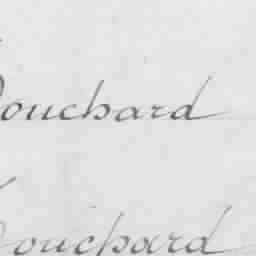 Bouchard
Bouchard